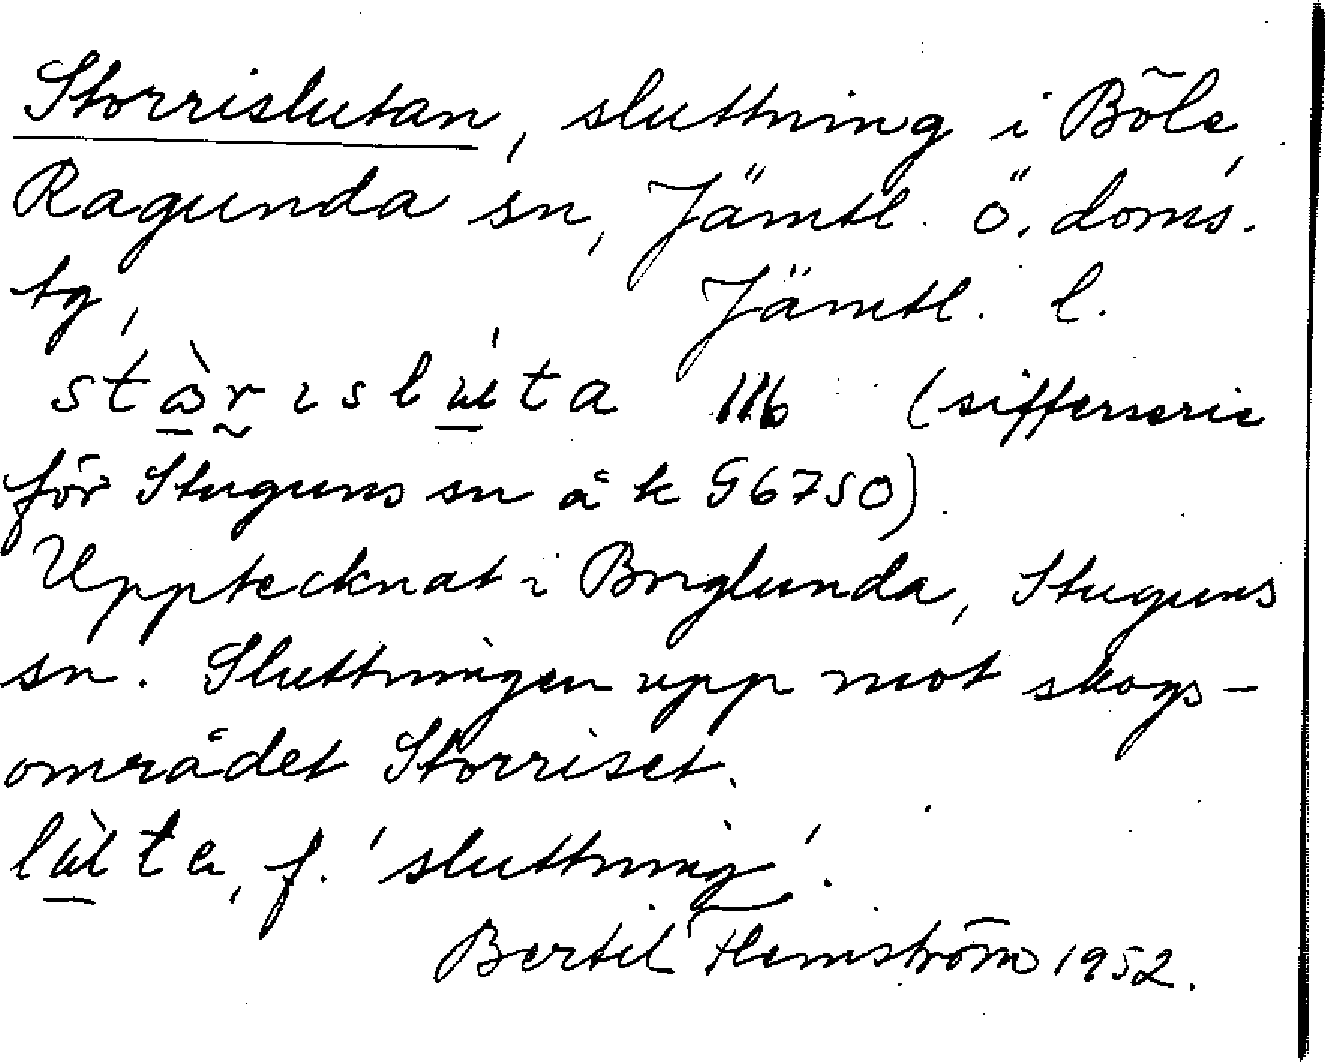 Storrislutan, sluttning i Böle,
Ragunda sn, Jämtl. ö. doms.
tg, Jämtl. l.
116 (sifferserie
för Stuguns sn å k G6750).
Upptecknat i Borglunda, Stuguns
sn. Sluttningen upp mot skogs-
området Storriset.
f. 'sluttning'.
Bertil Flemström 1952.